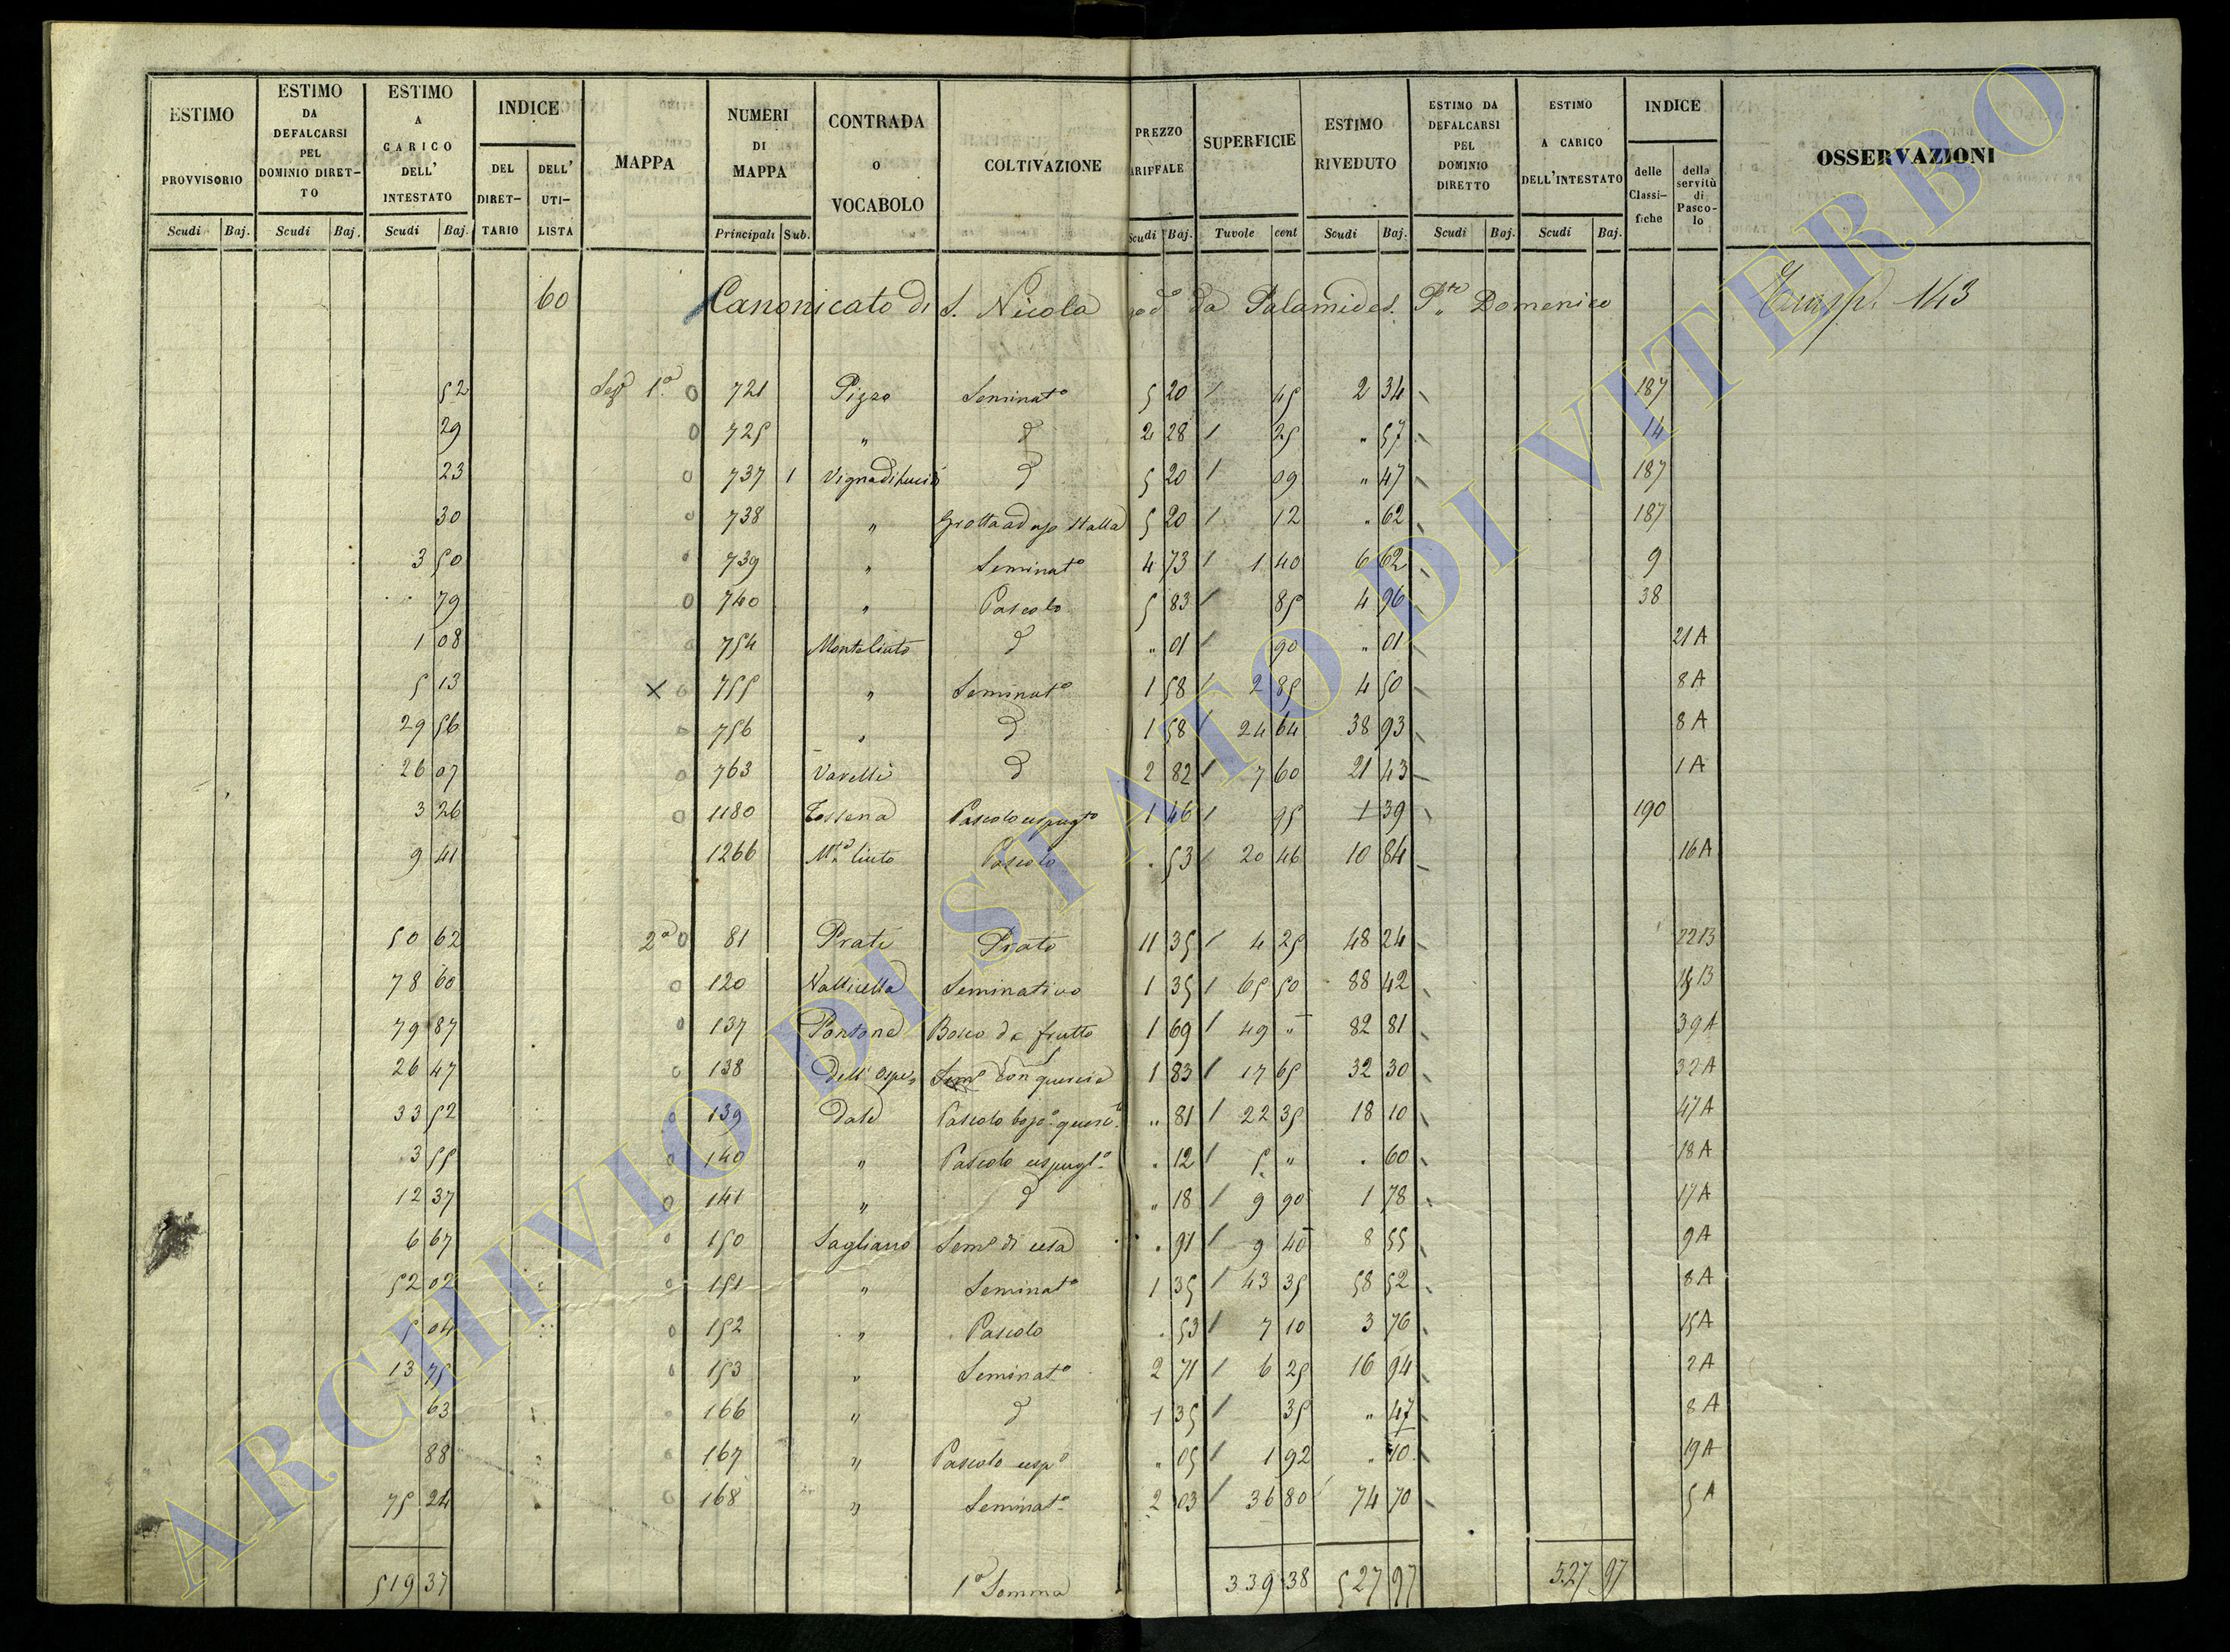 ESTIMO PROVVISORIO | ESTIMO DA DEFALCARSI PEL DOMINIO DIRET-TO | ESTIMO A CARICO DELL' INTESTATO | INDICE | MAPPA | NUMERI DI MAPPA | CONTRADA O VOCABOLO | COLTIVAZIONE | PREZZO ARIFFALE | SUPERFICIE | ESTIMO RIVEDUTO | ESTIMO DA DEFALCARSI PEL DOMINIO DIRETTO | ESTIMO A CARICO DELL'INTESTATO | INDICE | OSSERVAZIONI
DEL DIRET-TARIO | DELL' UTI-LISTA | delle Classi-fiche | della servitù di Pasco-lo
Scudi | Baj. | Scudi | Baj. | Scudi | Baj. | Principali | Sub. | Scudi | Baj. | Tavole | cent | Scudi | Baj. | Scudi | Baj. | Scudi | Baj.
60 Canonicato di S. Nicola da Palamides. Domenico Trasp. 143
52 Sez 1a 0 721 Pizzo Seminato 5 20 45 2 34 187
29 0 725 " d 2 28 25 " 57 14
23 0 737 1 Vigna di 5 20 09 " 47 187
30 0 738 " Grotta ad uso Stalla 5 20 12 " 62 187
3 50 0 739 " Seminato 4 73 1 40 6 62 9
79 0 740 " Pascolo 5 83 85 4 96 38
1 08 0 754 Monteliuto d " 01 90 " 01 21A
5 13 X 0 755 " Seminato 1 58 2 85 4 50 8A
29 56 0 756 " d 1 58 24 64 38 93 8A
26 07 0 763 Varelli d 2 82 7 60 21 43 1A
3 26 0 1180 Tossena Pascolo cespugto 1 46 95 1 39 190
9 41 1266 Mte liuto Pascolo " 53 20 46 10 84 16A
50 62 2a 0 81 Prati Prato 11 35 4 25 48 24
78 60 0 120 Vallicella Seminativo 1 35 65 50 88 42
79 87 0 137 Pontone Bosco da frutto 1 69 49 " 82 81 39A
26 47 0 138 Dell' Ospe Semo con quercie 1 83 17 65 32 30 32A
33 52 0 139 dale Pascolo " 81 22 35 18 10 47A
3 55 0 140 " Pascolo cespugto " 12 5 " " 60 18A
12 37 0 141 " d " 18 9 90 1 78 17A
6 67 0 150 Sagliano Semo di " 91 9 40 8 55 9A
52 02 0 151 " Seminato 1 35 43 35 58 52 8A
5 04 0 152 " Pascolo " 53 7 10 3 76 15A
13 75 0 153 " Seminato 2 71 6 25 16 94 2A
63 0 166 " d 1 35 35 " 47 8A
88 0 167 " Pascolo cespo " 05 1 92 " 10 19A
75 24 0 168 " Seminato 2 03 36 80 74 70 5A
519 37 1a Somma 339 38 527 97 527 97
ARCHIVIO DI STATO DI VITERBO